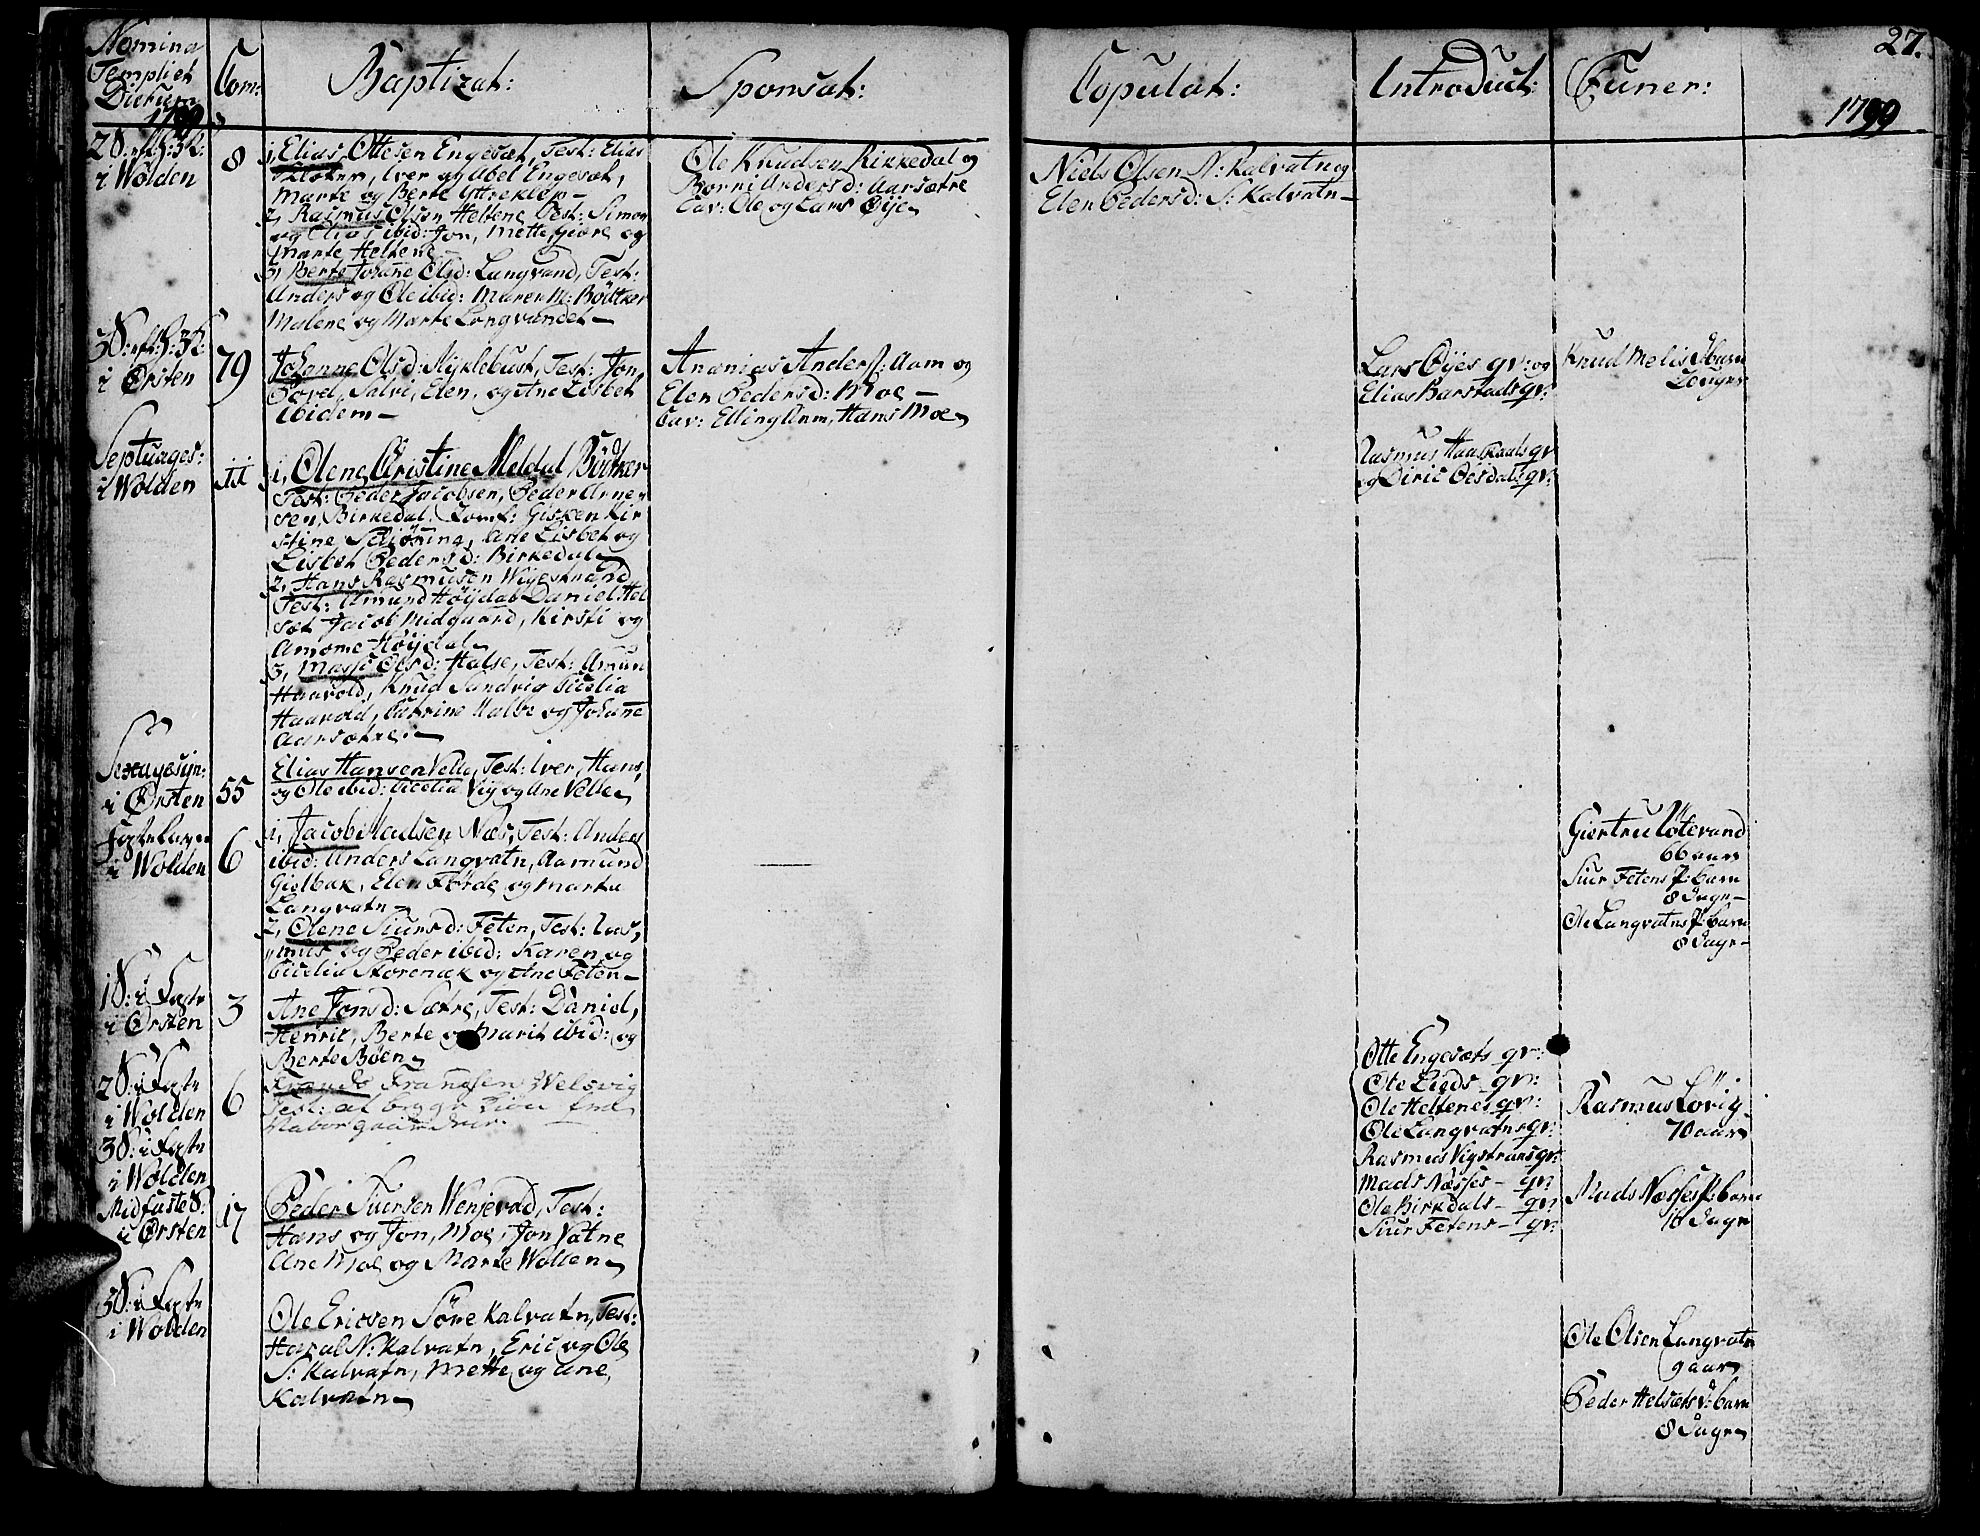 Nomina
Templi et
Dierum
1799
Com:
Baptizat:
Sponsat:
Copulat:
Introduct:
Funer:
27.
1799
2 S: eft: h: 3 K:
i Wolden
8
1, Elias Ottesen Engesæt, Test: Elias
Iver og Abel Engesæt,
Marte og Berte Yttreklep
2, Rasmus Olsen Heltene Test: Simon
og Elias ibid: Jon, Mette, giøre og
Marte Heltene
3, Berte Johanne Olsd: Langvand, Test:
Anders og Ole ibid: Maren M: Bødtker
Malene og Marte Longvandet
Ole Knudsen Birkedal og
Børni Andersd: Aarsætre
Cav: Ole og Lars Øije
Niels Olsen N: Kalvatn og
Elen Pedersd: S: Kalvatn
3 S: eft: h: 3 K:
i Ørsten
79
Johanne Olsd: Myklebust, Test: Jon,
Povel, Salvi, Elen, og Ane Lisbet
ibidem
Ananias Anders: Aam og
Elen Pedersd: Moe
Cav: Elling Aam, Hans Moe
Lars Øijes qv: og
Elias Barstads qv:
Knud Melis D: barn
Septuages:
i Wolden
11
1, Olene Christine Meldal Bødtker
Test: Peder Jacobsen, Peder Arne
sen, Birkedal. Jomf: Gisken Kir
stine Schiøning, Ane Lisbet og
Lisbet Pedersd: Birkedal
2, Hans Rasmusen Wigestrand
Test: Amund Høydal Daniel Hel
sæt Jacob Midgaard, Kirsti og
Anne Høydal
3, Massi Olsd: Halse, Test: Amun
Haavold, Knud Sandvig Cicelia
Haavold, Catrine Halse og Johane
Aarsætre
Rasmus Haavolds qv
og Diric Oesdals qv:
Sexagesim:
i Ørsten
55
Elias Hansen Velle, Test: Iver, Hans,
og Ole ibid: Cicelia Vig og Ane Velle
Fastelavn
i Wolden
6
1, Jacob Madsen Næs, Test: Anders
ibid: Anders Langvatn, Aamund
Gielbak, Elen Førde, og Marta
Langvatn
2, Olene Siursd: Feten, Test: Ras,
mus og Peder ibid: Karen og
Cicelia Storenæk og Ane Feten
Giertru Løtevand
66 aar
Siur Fetens P: barn
8 Dage
Ole Langvatns P: barn
8 Dage
1 S: i Faste
i Ørsten
3
Ane Jonsd: Sætre, Test: Daniel,
Henric, Berte og Marit ibid: og
Berte Bøen
2 S: i Faste
i Wolden
6
Fransen Welsvig
Test:
Otte Engesæts qv:
Ole Lieds qv:
Ole Heltenes qv:
Ole Langvatns qv:
Rasmus Vigstrans qv:
Mads Næsses qv:
Ole Birkdals qv:
Siur Fetens qv:
Rasmus Løvig
70 aar
3 S: i Faste
i Wolden
Mads Næsses P: barn
16 Dage
Midfaste S:
i Ørsten
17
Peder Siursen Wenjevold, Test:
Hans og Jon, Moe, Jon Vatne
Ane Moe og Marte Wollen
3 S: i Faste
i Wolden
Ole Ericsen Søre Kalvatn, Test:
Haral N: Kalvatn, Eric og Ole
S: Kalvatn, Mette og Ane
Kalvatn
Ole Olsen Langvatn
9 aar
Peder Helsets D: barn
8 Dage